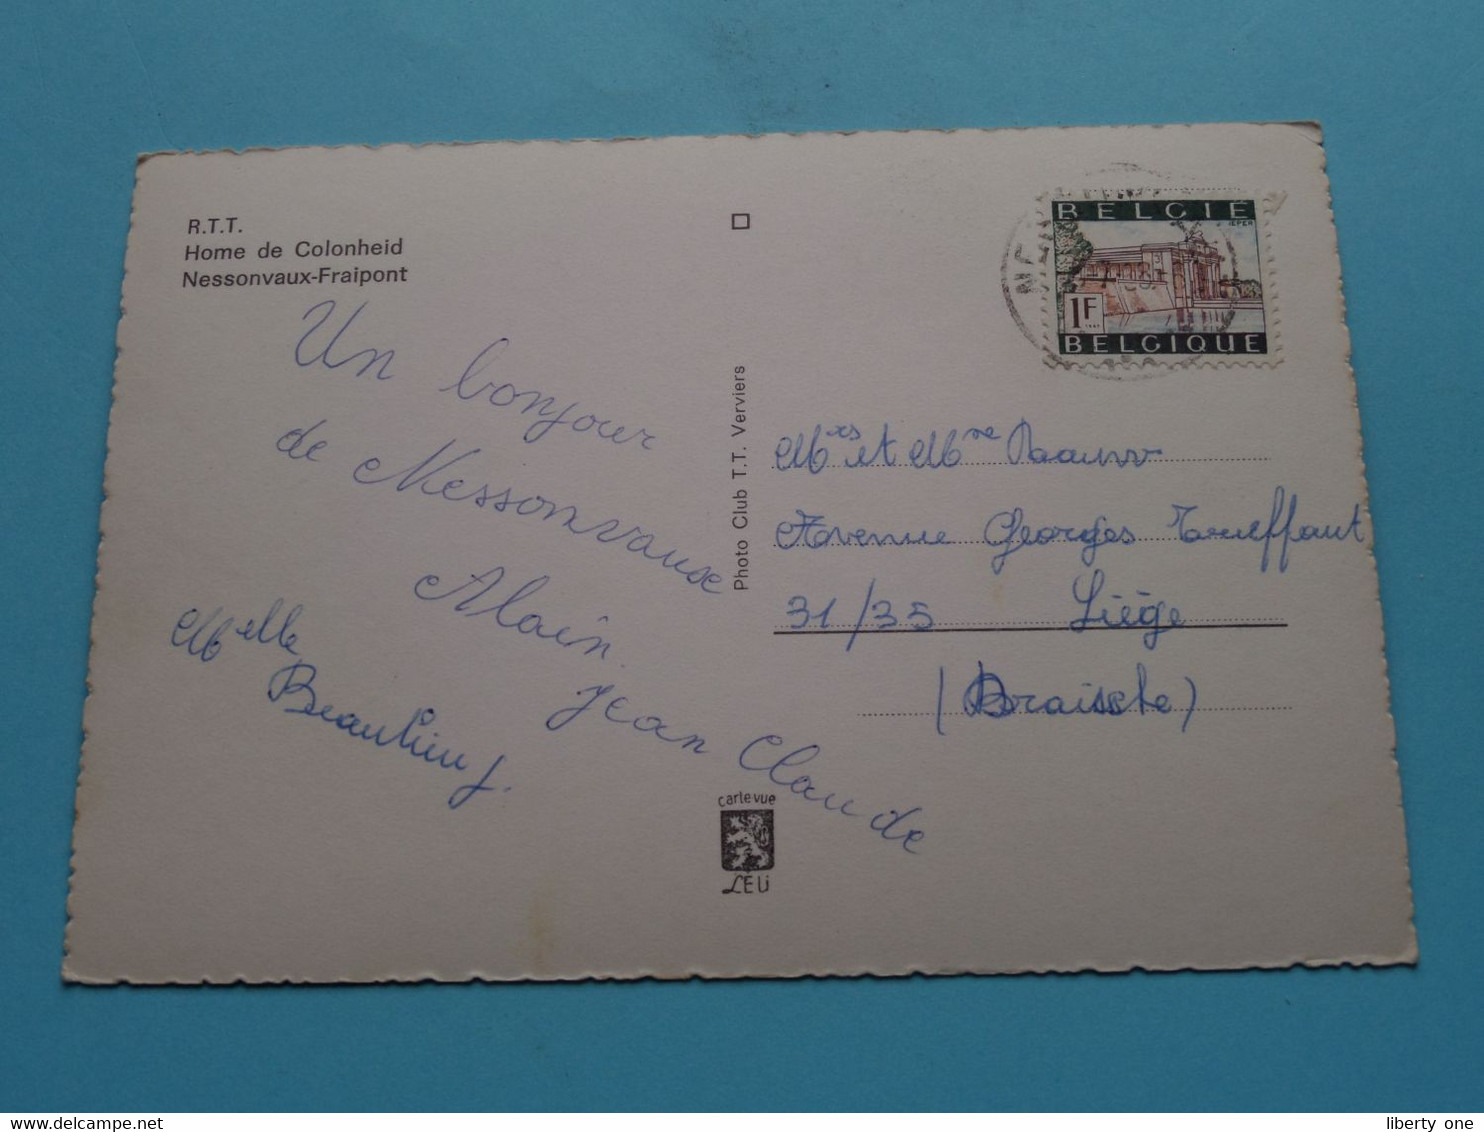 R.T.T.
Home de Colonheid
Nessonvaux-Fraipont
Un bonjour
de Nessonvause
Alain.
Jean Claude
Melle
Beaulieu J.
Photo Club T.T. Verviers
carte vue
LELi
BELGIË
IEPER
1F
BELGIQUE
Mrs et Mme
Avenue Georges Truffaut
31/35 Liège
(Droixhe)
liberty one